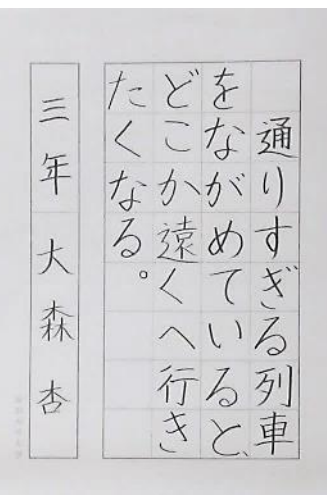 通りすぎる列車
をながめていると、
どこか遠くへ行き
たくなる。
三年 大森杏